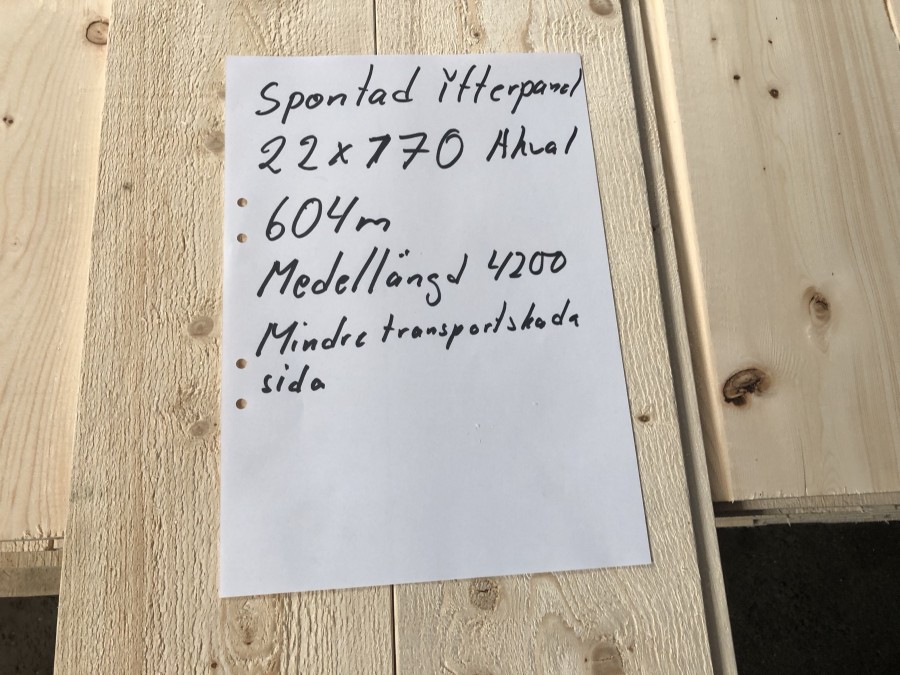 Spontad ytterpanel
22x170 Ahval
604m
Medellängd 4200
Mindre transportskada
sida